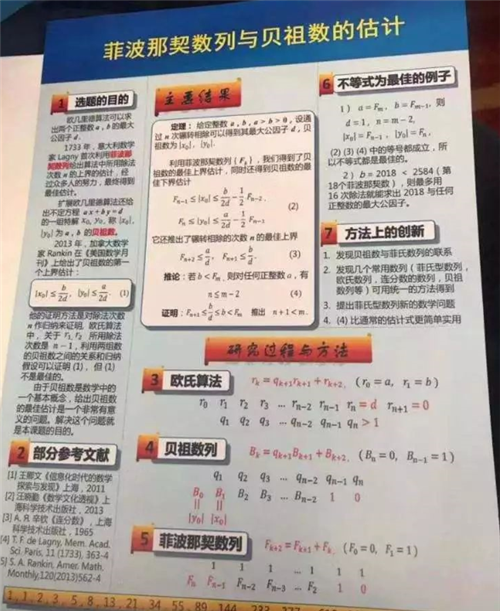 菲波那契数列与贝祖数的估计
1 选题的目的
欧几里德算法可以求
出两个正整数 a, b 的最大
公因子 d。
1733 年，意大利数学
家 Lagny 首次利用菲波那
契数列给出算法中所用除法
次数 n 的上界的估计，经
过众多人的努力，最终得到
最佳估计。
扩展欧几里德算法还给
出不定方程 ax+by=d
的一组特解 x₀, y₀，称 |x₀|,
|y₀| 为 a, b 的贝祖数。
2013 年，加拿大数学
家 Rankin 在《美国数学月
刊》上给出了贝祖数的第一
个上界估计：
|x₀| ≤ b/2d, |y₀| ≤ a/2d (1)
他的证明方法是对除法次数
n 作归纳来证明。欧氏算法
中，关于 r₁, r₂ 所用除法
次数是 n − 1，利用两组数
的贝祖数之间的关系和归纳
假设可以证明 (1)，但 (1)
不是最佳的。
由于贝祖数是数学中的
一个基本概念，给出贝祖数
的最佳估计是一个非常有意
义的问题。解决这个问题就
是本课题的目的。
2 部分参考文献
[1] 王卿文《信息化时代的数学
探索与发现》上海，2011
[2] 汪晓勤《数学文化透视》上
海科学技术出版社，2013
[3] A. Я. 辛钦《连分数》，上海
科学技术出版社，1965
[4] T. F. de Lagny, Mem. Acad.
Sci. Paris, 11 (1733), 363-4
[5] S. A. Rankin, Amer. Math.
Monthly,120(2013)562-4
主要结果
定理：给定整数 a, b, a > b > 0，设通
过 n 次辗转相除可以得到其最大公因子 d，贝
祖数为 |x₀|, |y₀|.
利用菲波那契数列 { Fₖ }，我们得到了贝
祖数的最佳上界估计，同时还得到贝祖数的最
佳下界估计
Fₙ₋₁ ≤ |x₀| ≤ b/2d − 1/2 Fₙ₋₂,
(2)
Fₙ ≤ |y₀| ≤ a/2d − 1/2 Fₙ₋₁.
它还推出了辗转相除的次数 n 的最佳上界
Fₙ₊₂ ≤ a/d, Fₙ₊₁ ≤ b/d. (3)
推论：若 b < Fₘ，则对任何正整数 a，有
n ≤ m − 2 (4)
证明：Fₙ₊₁ ≤ b/d ≤ b < Fₘ 推出 n + 1 < m.
6 不等式为最佳的例子
1） a = Fₘ, b = Fₘ₋₁, 则
d = 1, n = m − 2,
|x₀| = Fₙ₋₁, |y₀| = Fₙ.
(2) (3) (4) 中的等号都成立，所
以不等式都是最佳的。
2） b = 2018 < 2584 ( 第
18个菲波那契数 )，则最多用
16 次除法就能求出 2018 与任何
正整数的最大公因子。
7 方法上的创新
1. 发现贝祖数与菲氏数列的联系
2. 发现几个常用数列 ( 菲氏型数列，
欧氏数列，连分数的数列，贝祖
数列等 ) 可用统一的方法得到
3. 提出菲氏型数列新的数学问题
4. (4) 比通常的估计式更简单实用
研究过程与方法
3 欧氏算法 rₖ = qₖ₊₁rₖ₊₁ + rₖ₊₂, ( r₀ = a, r₁ = b )
r₀ r₁ r₂ r₃ … rₙ₋₂ rₙ₋₁ rₙ = d rₙ₊₁ = 0
q₁ q₂ q₃ … qₙ₋₂ qₙ₋₁ qₙ > 1
4 贝祖数列 Bₖ = qₖ₊₁Bₖ₊₁ + Bₖ₊₂, ( Bₙ = 0, Bₙ₋₁ = 1 )
q₁ q₂ q₃ … qₙ₋₂ qₙ₋₁ qₙ
B₀ B₁ B₂ B₃ … Bₙ₋₂ 1 0
|y₀| |x₀|
5 菲波那契数列 Fₖ₊₂ = Fₖ₊₁ + Fₖ, ( F₀ = 0, F₁ = 1 )
1 1 1 … 1 1 1
Fₙ Fₙ₋₁ Fₙ₋₂ Fₙ₋₃ … F₂ 1 0
1, 1, 2, 3, 5, 8, 13, 21, 34, 55, 89, 144, 233